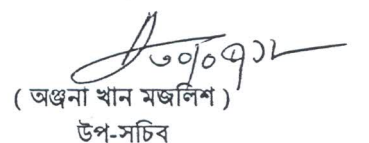 ( অঞ্জনা খান মজলিশ )
উপ-সচিব